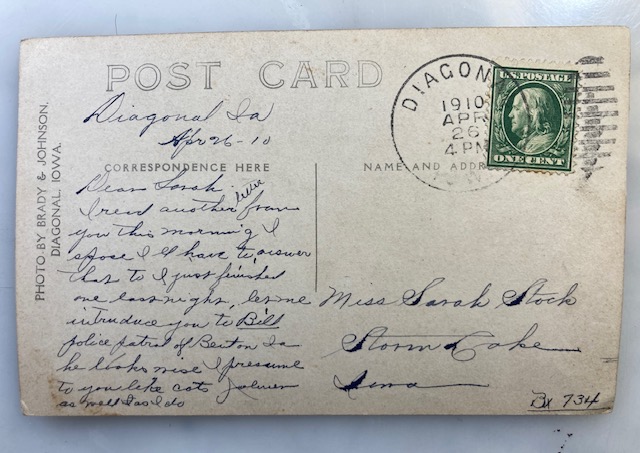 POST CARD
PHOTO BY BRADY & JOHNSON.
DIAGONAL, IOWA.
DIAGON
1910
APR
26
4 PM
U.S. POSTAGE
ONE CENT
CORRESPONDENCE HERE
NAME AND ADDR
Diagonal Ia
Apr 26-10
Dear Sarah
letter
I rend another from
you this morning I
spose I ll have to answer
that to I just finished
one last night, let me
introduce you to Bill
police patrol of Ia
he looks wise I presume
to you like cats
as well as I do
Miss Sarah Stock
Storm Lake
Iowa
Bx 734